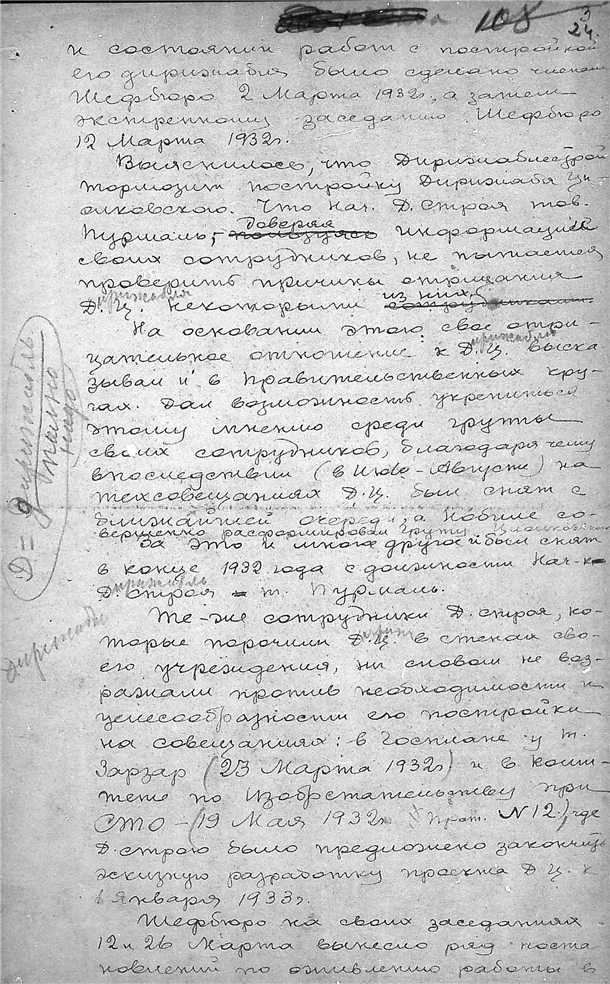 108
3
24.
и состоянии работ с постройкой
его дирижабля было сделано членом
Шефбюро 2 Марта 1932г., а затем
экстренному заседанию Шефбюро
12 Марта 1932г.
Выяснилось, что Дирижаблестрой
тормозит постройку Дирижабля Ци-
олковского. Что Нач. Д. Строя тов.
доверяя
Пурмаль, пользуясь информацией
своих сотрудников, не пытается
проверить причины отрицания
дирижабля
Д. Ц. некоторыми из них. сотрудниками.
На основании этого свое отри-
дирижабль
цательное отношение к Д. Ц. выска-
зывал и в Правительственных кру-
гах. Дал возможность укрепиться
этому мнению среди группы
своих сотрудников, благодаря чему
впоследствии (в Июле-Августе) на
техсовещаниях Д. Ц. был снят с
ближайшей очереди, а Нобиле со-
вершенно расформировал группу Циолковского
За это и многое другое и был снят
в конце 1932 года с должности Нач-к
дирижабль
Д. строя т. Пурмаль.
Те-же сотрудники Д. строя, ко-
торые порочили Д. Ц. в стенах сво-
его учреждения, ни словом не воз-
ражали против необходимости и
целесообразности его постройки
на совещаниях: в Госплане у т.
Зарзар (23 Марта 1932г) и в Коми-
тете по Изобретательству при
СТО - (19 Мая 1932г. Прот. N 12), где
Д. строю было предложено закончить
эскизную разработку проекта Д. Ц. к
1 Января 1933г.
Шефбюро на своих заседаниях
12 и 26 Марта вынесло ряд поста
новлений по оживлению работы в
Д = дирижабль
полно
надо
дирижабль